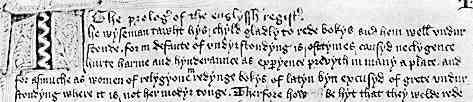 The prolog of the englyssh regist
The wyseman tawht hys chyld gladly to rede bokys and hem well vndur
stonde. for in defaute of vndyrstondyng is ofttymes causyd neclygence
hurte harme and hynderaunce as experyence prevyth in many a place. and
for asmuche as women of relygyone in redynge bokys of latyn byn excusyd of grete vndur
stondyng where it is not her modyr tonge. Therfore how be hyt that they wolde rede